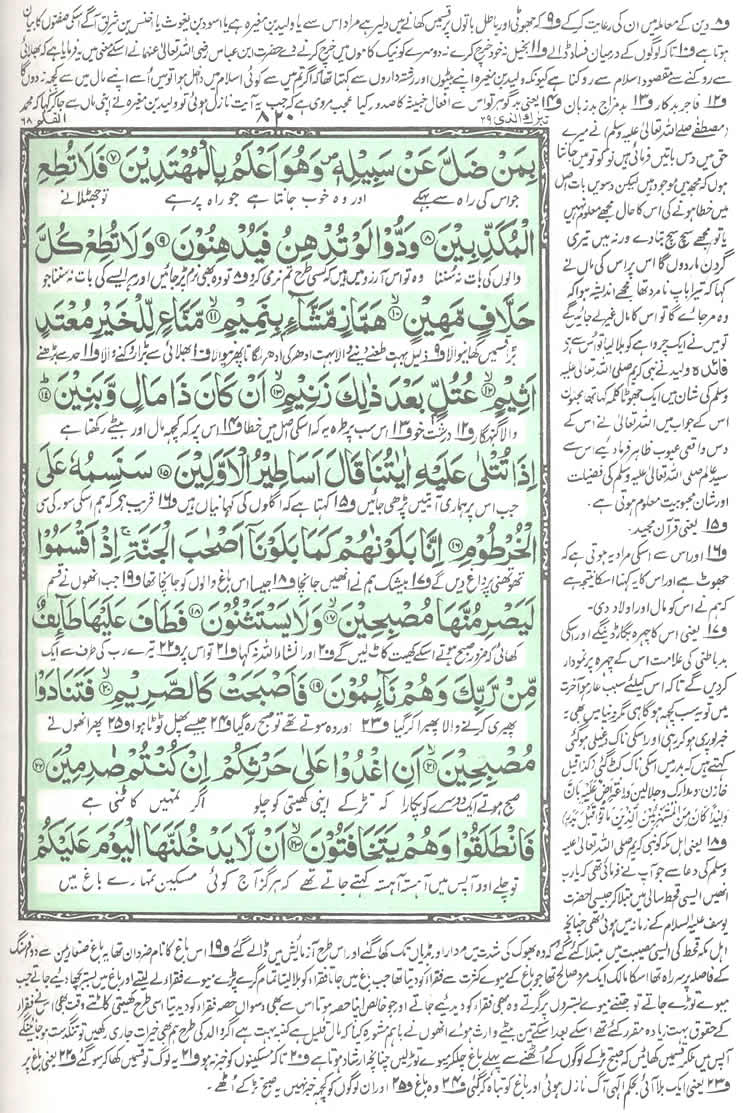 و۸ دین کے معاملہ میں ان کی رعایت کرکے و۹ کہ جھوٹی اور باطل باتوں پر قسمیں کھانے میں دلیر ہے مراد اس سے یا ولید بن مغیرہ ہے یا اسود بن یغوث یا اخنس بن شریق آگے اسکی صفتوں کا بیان
ہوتا ہے و۱۰ تاکہ لوگوں کے درمیان فساد ڈالے و۱۱ بخیل نہ خود خرچ کرے نہ دوسرے کو نیک کاموں میں خرچ کرنے دے حضرت ابن عباس رضی اللہ تعالیٰ عنہما نے اسکے معنی میں یہ فرمایا ہے کہ بھلائی
سے روکنے سے مقصود اسلام سے روکنا ہے کیونکہ ولید بن مغیرہ اپنے بیٹوں اور رشتہ داروں سے کہتا تھا کہ اگر تم میں سے کوئی اسلام میں داخل ہوا تو میں اسے اپنے مال میں سے کچھ نہ دوں گا
و۱۲ فاجر بدکار و۱۳ بدمزاج بدزبان و۱۴ یعنی بدگوہر تو اس سے افعال خبیثہ کا صدور کیا عجب مروی ہے کہ جب یہ آیت نازل ہوئی تو ولید بن مغیرہ نے اپنی ماں سے جاکر کہا کہ محمد
تبٰرک الذی ۲۹
۸۲۰
القلم ۶۸
بِمَنْ ضَلَّ عَنْ سَبِيْلِهٖ ۪ وَهُوَ اَعْلَمُ بِالْمُهْتَدِيْنَ ۷ فَلَا تُطِعِ
جو اس کی راہ سے بہکے اور وہ خوب جانتا ہے جو راہ پر ہے تو جھٹلانے
الْمُكَذِّبِيْنَ ۸ وَدُّوْا لَوْ تُدْهِنُ فَيُدْهِنُوْنَ ۹ وَلَا تُطِعْ كُلَّ
والوں کی بات نہ سننا وہ تو اس آرزو میں ہیں کہ کسی طرح تم نرمی کرو و۸ تو وہ بھی نرم پڑ جائیں اور ہر ایسے کی بات نہ سننا جو
حَلَّافٍ مَّهِيْنٍ ۱۰ هَمَّازٍ مَّشَّآءٍۭ بِنَمِيْمٍ ۱۱ مَّنَّاعٍ لِّلْخَيْرِ مُعْتَدٍ
بڑا قسمیں کھانیوالا و۹ ذلیل بہت طعنے دینے والا بہت ادھر کی ادھر لگاتا پھرنیوالا و۱۰ بھلائی سے بڑا روکنے والا و۱۱ حد سے بڑھنے
اَثِيْمٍ ۱۲ عُتُلٍّۭ بَعْدَ ذٰلِكَ زَنِيْمٍ ۱۳ اَنْ كَانَ ذَا مَالٍ وَّبَنِيْنَ ۱۴
والا گنہگار و۱۲ درشت خو و۱۳ اس سب پر طرہ یہ کہ اسکی اصل میں خطا و۱۴ اس پر کہ کچھ مال اور بیٹے رکھتا ہے
اِذَا تُتْلٰى عَلَيْهِ اٰيٰتُنَا قَالَ اَسَاطِيْرُ الْاَوَّلِيْنَ ۱۵ سَنَسِمُهٗ عَلَى
جب اس پر ہماری آیتیں پڑھی جائیں و۱۵ کہتا ہے کہ اگلوں کی کہانیاں ہیں و۱۶ قریب ہے کہ ہم اسکی سور کی سی
الْخُرْطُوْمِ ۱۶ اِنَّا بَلَوْنٰهُمْ كَمَا بَلَوْنَآ اَصْحٰبَ الْجَنَّةِ ۚ اِذْ اَقْسَمُوْا
تھوتھنی پر داغ دیں گے و۱۷ بیشک ہم نے انھیں جانچا و۱۸ جیسا اس باغ والوں کو جانچا تھا و۱۹ جب انھوں نے قسم
لَيَصْرِمُنَّهَا مُصْبِحِيْنَ ۱۷ وَلَا يَسْتَثْنُوْنَ ۱۸ فَطَافَ عَلَيْهَا طَآئِفٌ
کھائی کہ ضرور صبح ہوتے اسکے کھیت کاٹ لیں گے و۲۰ اور انشاء اللہ نہ کہا و۲۱ تو اس پر و۲۲ تیرے رب کی طرف سے ایک
مِّنْ رَّبِّكَ وَهُمْ نَآئِمُوْنَ ۱۹ فَاَصْبَحَتْ كَالصَّرِيْمِ ۲۰ فَتَنَادَوْا
پھیری کرنے والا پھیرا کر گیا و۲۳ اور وہ سوتے تھے تو صبح رہ گیا و۲۴ جیسے پھل ٹوٹا ہوا و۲۵ پھر انھوں نے
مُصْبِحِيْنَ ۲۱ اَنِ اغْدُوْا عَلٰى حَرْثِكُمْ اِنْ كُنْتُمْ صٰرِمِيْنَ ۲۲
صبح ہوتے ایک دوسرے کو پکارا کہ تڑکے اپنی کھیتی کو چلو اگر تمہیں کاٹنی ہے
فَانْطَلَقُوْا وَهُمْ يَتَخَافَتُوْنَ ۲۳ اَنْ لَّا يَدْخُلَنَّهَا الْيَوْمَ عَلَيْكُمْ
تو چلے اور آپس میں آہستہ آہستہ کہتے جاتے تھے کہ ہرگز آج کوئی مسکین تمہارے باغ میں
(مصطفےٰ صلی اللہ تعالیٰ علیہ وسلم) نے میرے
حق میں دس باتیں فرمائی ہیں نو کو تو میں جانتا
ہوں کہ مجھ میں موجود ہیں لیکن دسویں بات اصل
میں خطا ہونے کی اس کا حال مجھے معلوم نہیں
یا تو مجھے سچ سچ بتادے ورنہ میں تیری
گردن مار دوں گا اس پر اس کی ماں نے
کہا کہ تیرا باپ نامرد تھا مجھے اندیشہ ہوا کہ
وہ مرجائے گا تو اس کا مال غیر لے جائیں گے
تو میں نے ایک چرواہے کو بلا لیا تو اس سے ہے
فائدہ ولید نے نبی کریم صلی اللہ تعالیٰ علیہ
وسلم کی شان میں ایک جھوٹا کلمہ کہا تھا مجنون
اس کے جواب میں اللہ تعالیٰ نے اس کے
دس واقعی عیوب ظاہر فرما دیے اس سے
سید عالم صلی اللہ تعالیٰ علیہ وسلم کی فضیلت
اور شان محبوبیت معلوم ہوتی ہے۔
و۱۵ یعنی قرآن مجید۔
و۱۶ اور اس سے اسکی مراد یہ ہوتی ہے کہ
جھوٹ ہے اور اس کا یہ کہنا اسکا نتیجہ ہے
کہ ہم نے اس کو مال اور اولاد دی۔
و۱۷ یعنی اس کا چہرہ بگاڑ دینگے اور اسکی
بدباطنی کی علامت اس کے چہرہ پر نمودار
کردیں گے تاکہ اس کیلئے سبب عار ہو آخرت
میں تو یہ سب کچھ ہوگا ہی مگر دنیا میں بھی یہ
خبر پوری ہوکر رہی اور اسکی ناک دغیلی ہوگئی
کہتے ہیں کہ بدر میں اسکی ناک کٹ گئی کذا قیل
و۱۸ یعنی اہل مکہ کو نبی کریم صلی اللہ تعالیٰ علیہ
وسلم کی دعا سے جو آپ نے فرمائی تھی کہ یارب
انھیں ایسی قحط سالی میں مبتلا کر جیسی حضرت
یوسف علیہ السلام کے زمانہ میں ہوئی تھی چنانچہ
اہل مکہ قحط کی ایسی مصیبت میں مبتلا کئے گئے کہ وہ بھوک کی شدت میں مردار اور ہڈیاں تک کھا گئے اور اس طرح آزمائش میں ڈالے گئے و۱۹ اس باغ کا نام ضردان تھا یہ باغ صنعاء یمن سے دو فرسنگ
کے فاصلہ پر سر راہ تھا اسکا مالک ایک مرد صالح تھا جو باغ کے میوے کثرت سے فقراء کو دیتا تھا جب باغ میں جاتا فقراء کو بلا لیتا تمام گرے پڑے میوے فقراء لے لیتے اور باغ میں بستر بچھا دیے جاتے جب
میوے توڑے جاتے تو جتنے میوے بستروں پر گرتے وہ بھی فقراء کو دیدیے جاتے اور جو خالص اپنا حصہ ہوتا اس سے بھی دسواں حصہ فقراء کو دیدیتا اسی طرح کھیتی کاٹتے وقت بھی اس نے فقراء
کے حقوق بہت زیادہ مقرر کئے تھے اسکے بعد اسکے تین بیٹے وارث ہوئے انھوں نے باہم مشورہ کیا کہ مال قلیل ہے کنبہ بہت ہے اگر والد کی طرح ہم بھی خیرات جاری رکھیں تو تنگدست ہوجائینگے
آپس میں ملکر قسمیں کھائیں کہ صبح تڑکے لوگوں کے اٹھنے سے پہلے باغ چلکر میوے توڑ لیں چنانچہ ارشاد ہوتا ہے و۲۰ تاکہ مسکینوں کو خبر نہ ہو و۲۱ یہ لوگ تو قسمیں کھا کر سو گئے و۲۲ یعنی باغ پر
و۲۳ یعنی ایک بلا آئی بحکم الٰہی آگ نازل ہوئی اور باغ کو تباہ کر گئی و۲۴ وہ باغ و۲۵ اور ان لوگوں کو کچھ خبر نہیں یہ صبح تڑکے اٹھے۔